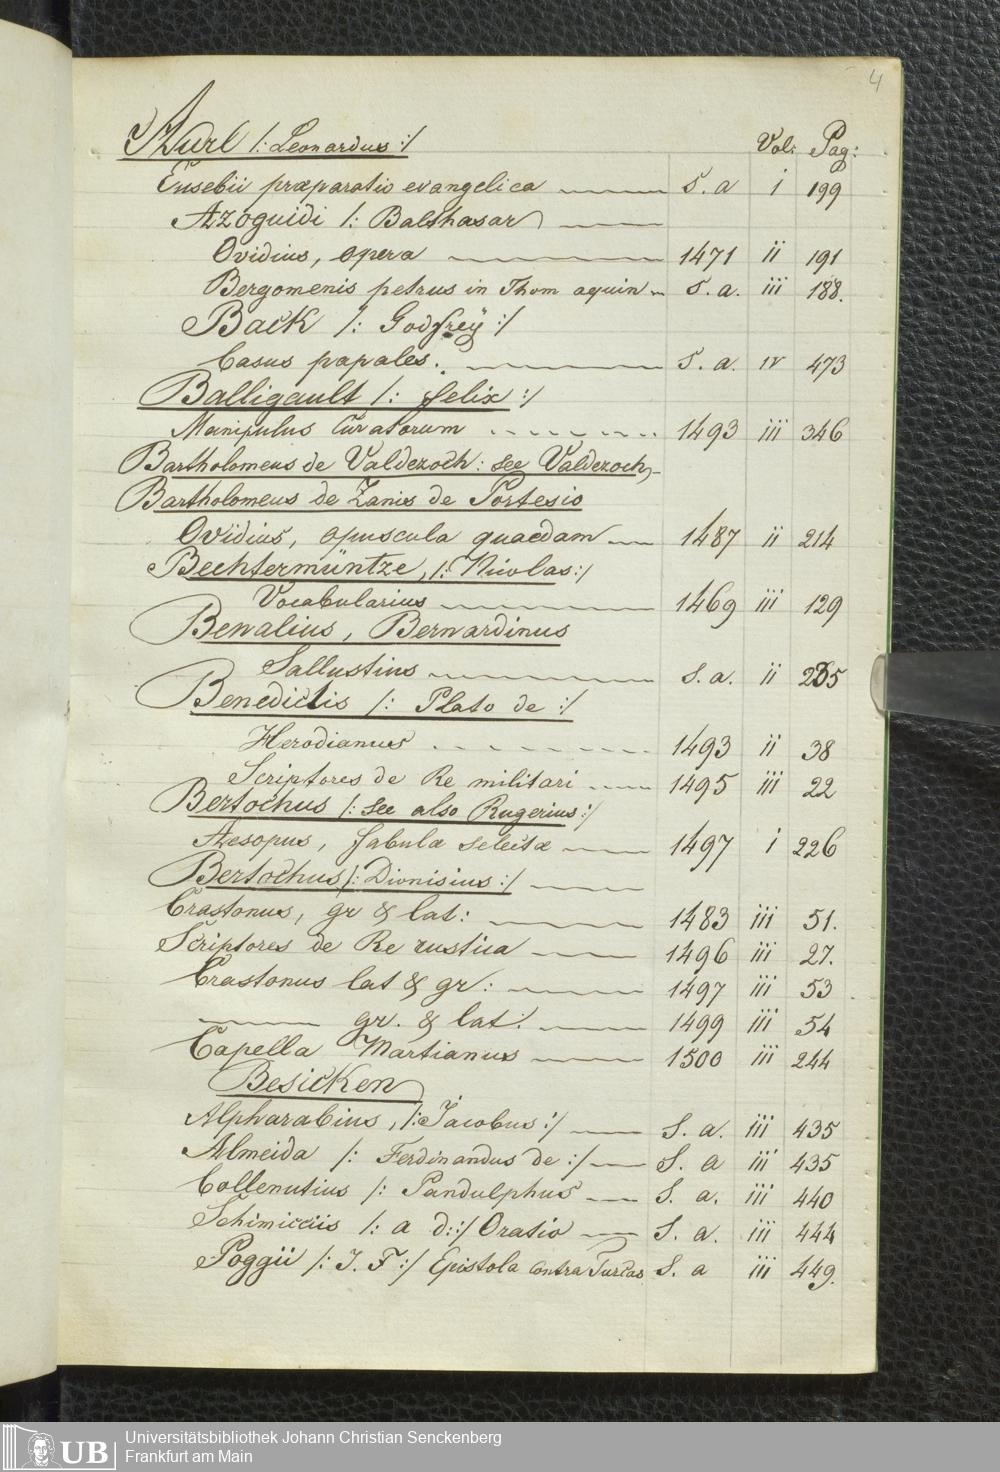 4
Aurl /: Leonardus :/ Vol: Pag:
Eusebii præparatio evangelica S. a i 199
Azoguidi /: Balthasar
Ovidius, opera 1471 ii 191
Bergomenis petrus in Thom aquin S. a. iii 188.
Back /: Godfreÿ :/
Casus papales. S. a. iv 473
Balligault /: felix :/
Manipulus Curatorum 1493 iii 346
Bartholomeus de Valdezoch: see Valdezoch
Bartholomeus de Zanis de Portesio
Ovidius, opuscula quaedam 1487 ii 214
Bechtermüntze, /: Nicolas :/
Vocabularius 1469 iii 129
Benalius, Bernardinus
Sallustius S. a. ii 235
Benedictis /: Plato de :/
Herodianus 1493 ii 38
Scriptores de Re militari 1495 iii 22
Bertochus /: see also Rugerius :/
Aesopus, fabulæ selectæ 1497 i 226
Bertochus /: Dionisius :/
Crastonus, gr & lat: 1483 iii 51.
Scriptores de Re rustica 1496 iii 27.
Crastonus lat & gr: 1497 iii 53
gr. & lat: 1499 iii 54
Capella Martianus 1500 iii 244
Besicken
Alpharabius, /: Jacobus :/ S. a. iii 435
Almeida /: Ferdinandus de :/ S. a iii 435
Collenutius /: Pandulphus S. a. iii 440
Schimicciis /: a d: :/ Oratio S. a. iii 444
Poggii /: J. F :/ Epistola contra Turcas S. a iii 449.
UB
Universitätsbibliothek Johann Christian Senckenberg
Frankfurt am Main